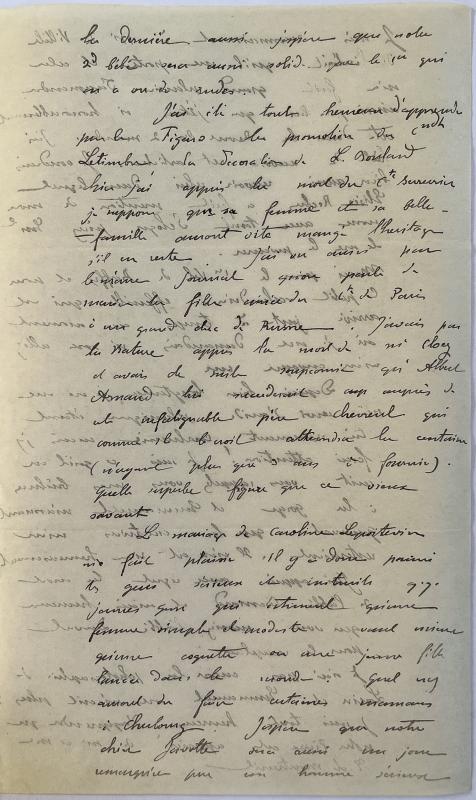 la dernière aussi j'espère que notre
2d bébé sera aussi solide que le 1er qui
on a
J'ai été toute heureuse d'apprendre
par le Figaro la promotion du Cndt
Letimbre la décoration de L. Boulard
hier j'ai appris la mort du
je suppose que sa femme et sa belle-
famille auront vite mangé l'héritage
s'il en reste J'ai vu aussi par
le même journal qu'on parle de
marier la fille ainée du Cte de Paris
à un grand duc de Russie J'avais par
la Nature appris la mort de Mr
et avais de suite soupçonné qu'Albert
Arnaud lui succéderait auprès de
cet infatigable père Chevreul qui
comme il le voit atteindra la centaine
(n'ayant plus que 3 ans à fournir).
Quelle superbe figure que ce vieux
savant
Le mariage de Caroline Lepoitevin
me fait plaisir. Il y a donc parmi
les gens sérieux et instruits qq.
jeunes gens qui estiment qu'une
femme simple et modeste vaut mieux
qu'une coquette ou une jeune fille
lancée dans le monde. Quel nez
auront du faire certaines mamans
à Cherbourg. J'espère que notre
chère sera aussi un jour
remarquée par un homme sérieux